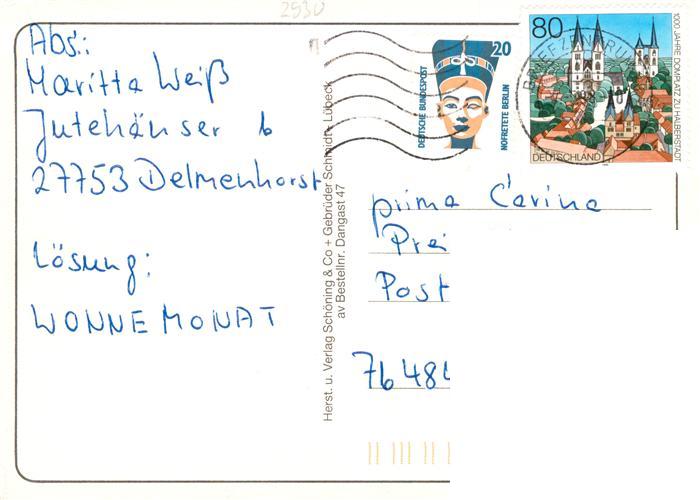 2930
Abs.:
Maritta Weiß
Jutehäuser 6
27753 Delmenhorst
Lösung:
WONNEMONAT
Herst. u. Verlag Schöning & Co + Gebrüder Schmidt, Lübeck
av Bestellnr. Dangast 47
20
DEUTSCHE BUNDESPOST
NOFRETETE BERLIN
80
1000 JAHRE DOMPLATZ ZU HALBERSTADT
DEUTSCHLAND
BRIEFZENTRUM
prima Carina
Prei
Post
76484